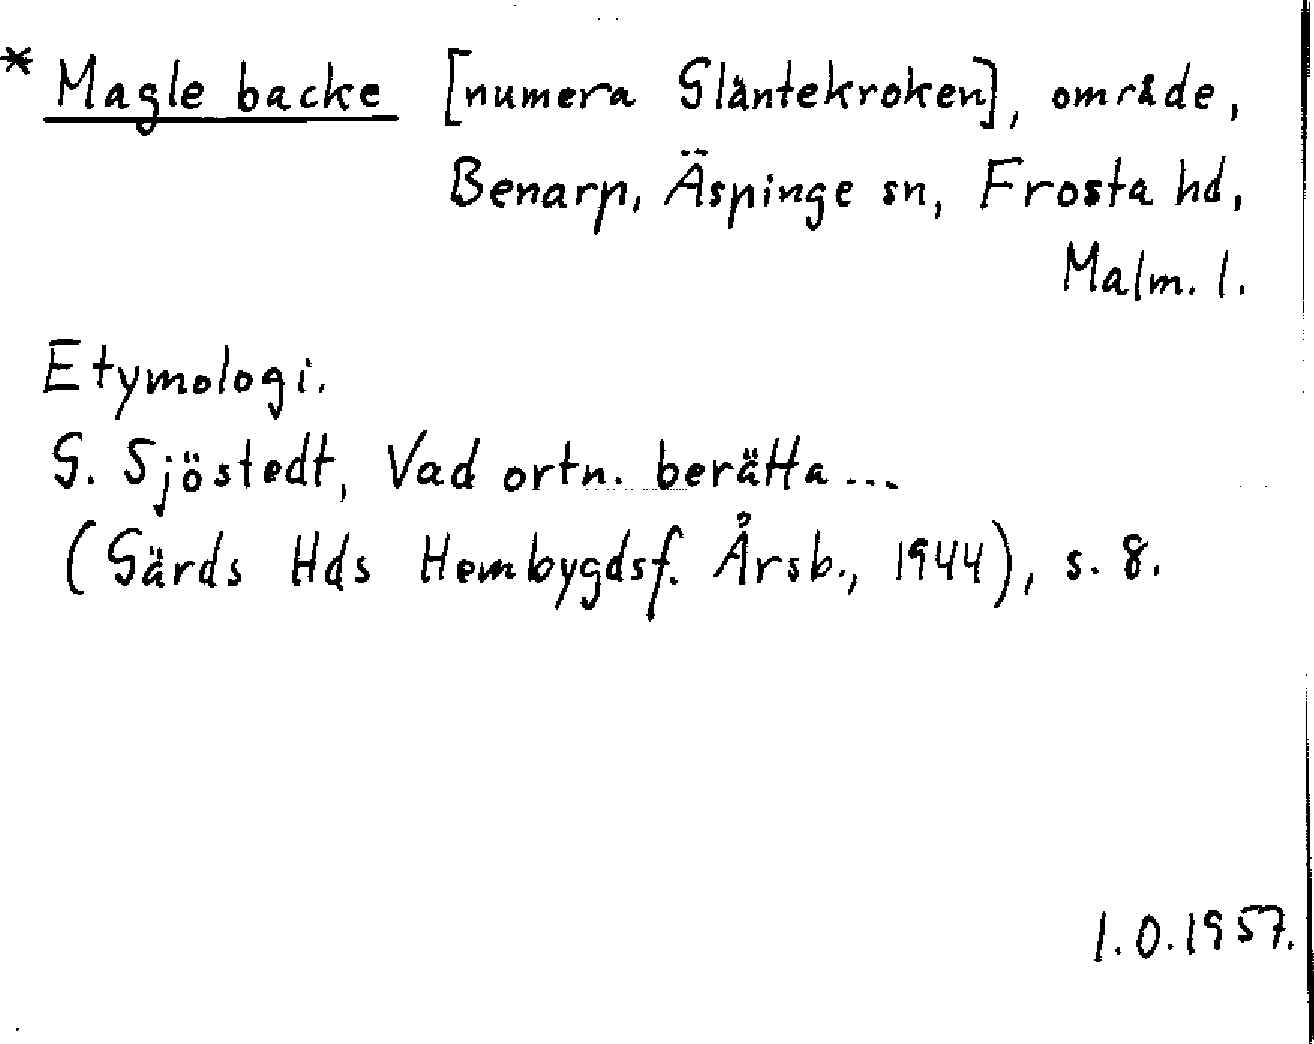 * Magle backe [numera Gläntekroken], område,
Benarp, Äspinge sn, Frosta hd,
Malm. l.
Etymologi.
G. Sjöstedt, Vad ortn. berätta...
(Gärds Hds Hembygdsf. Årsb., 1944), s. 8.
1.0.1957.